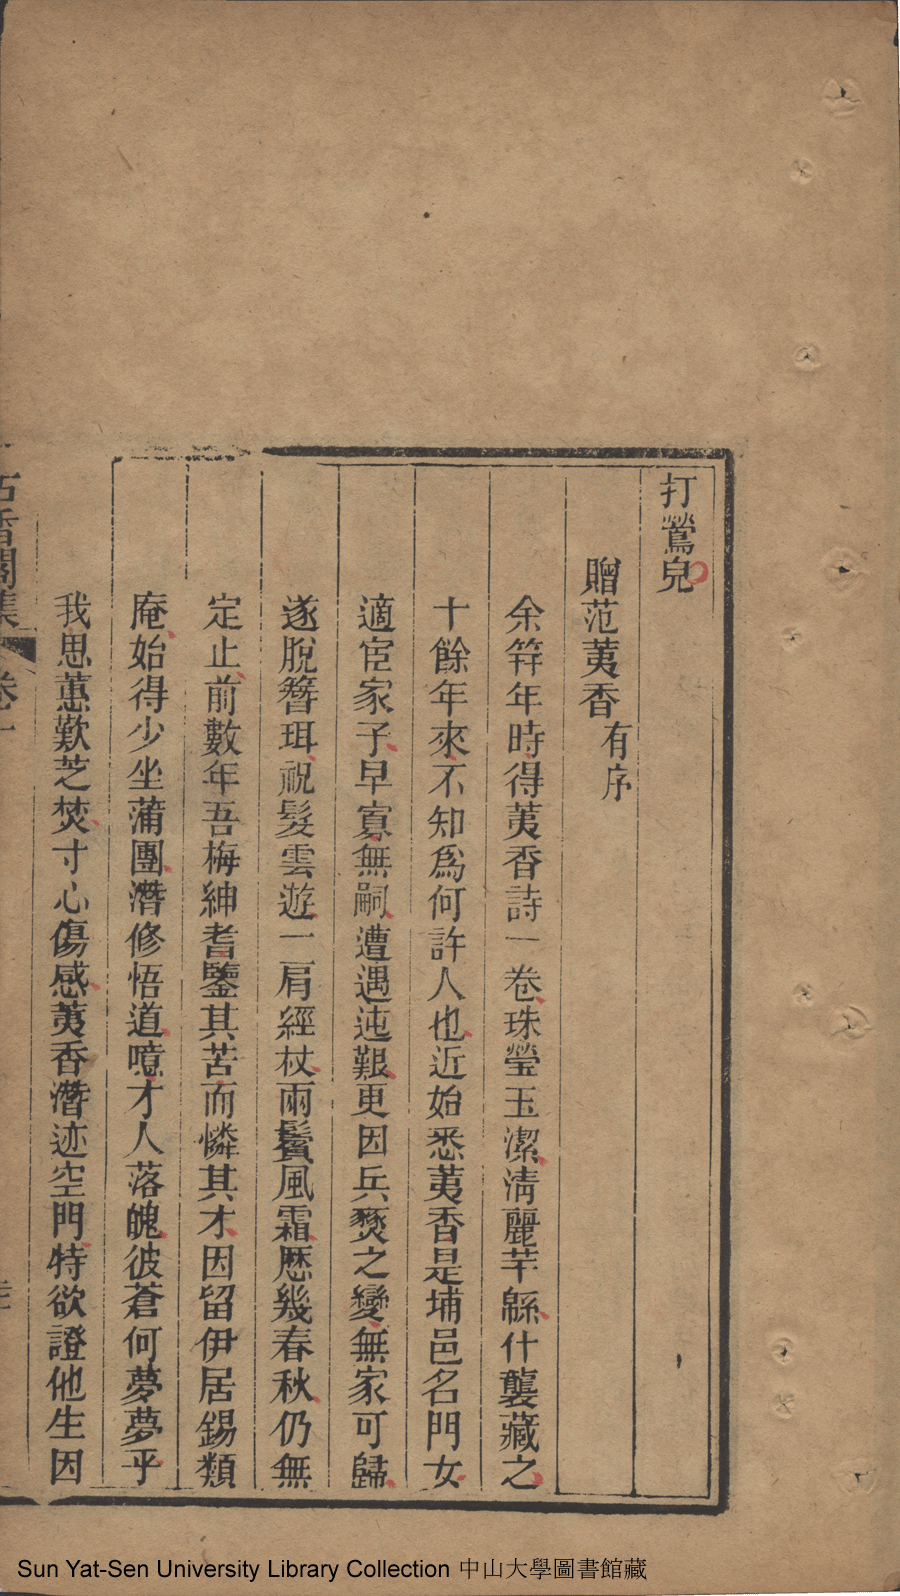 打鶯兒
贈范荑香有序
余笄年時得荑香詩一卷珠瑩玉潔清麗芊緜什襲藏之
十餘年來不知爲何許人也近始悉荑香是埔邑名門女
適宦家子早寡無嗣遭遇迍艱更因兵燹之變無家可歸
遂脫簪珥祝髮雲遊一肩經杖兩鬢風霜歷幾春秋仍無
定止前數年吾梅紳耆鑒其苦而憐其才因留伊居錫類
庵始得少坐蒲團潛修悟道噫才人落魄彼蒼何夢夢乎
我思蕙歎芝焚寸心傷感荑香潛迹空門特欲證他生因
古香閣集 卷一
Sun Yat-Sen University Library Collection 中山大學圖書館藏